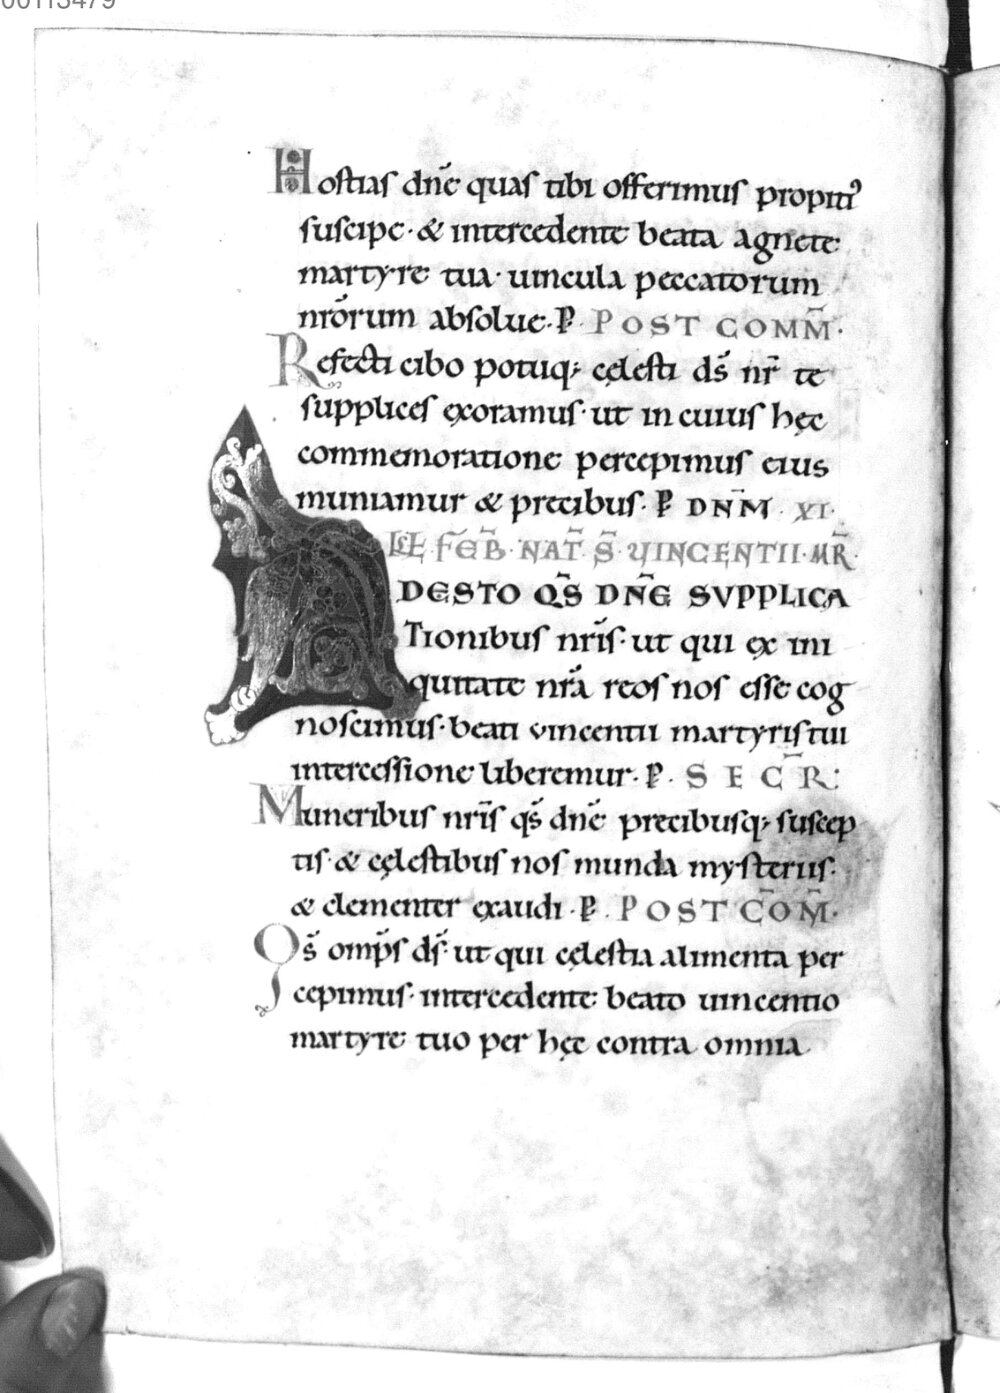 00113479
Hostias dn̄e quas tibi offerimus propiti᾽
suscipe · & intercedente beata agnete
martyre tua · uincula peccatorum
nr̄orum absolue · P POST COMM̄ ·
Refecti cibo potuq; cęlesti ds̄ nr̄ te
supplices exoramus · ut in cuius hęc
commemoratione percepimus eius
muniamur & precibus · P DNM̄ XI ·
KŁ FEB̄ · NAT̄ · S̄ · VINCENTII · MR̄ ·
ADESTO QS̄ DN̄E SVPPLICA
Tionibus nr̄is · ut qui ex ini
quitate nr̄a reos nos esse cog
noscimus · beati vincentii martyris tui
intercessione liberemur · P · SECR̄ :
Muneribus nr̄is qs̄ dn̄e precibusq; suscep
tis · & cęlestibus nos munda mysteriis ·
& clementer exaudi · P · POST CŌM̄ ·
Qs̄ omp̄s ds̄ · ut qui cęlestia alimenta per
cepimus · intercedente beato uincentio
martyre tuo per hęc contra omnia